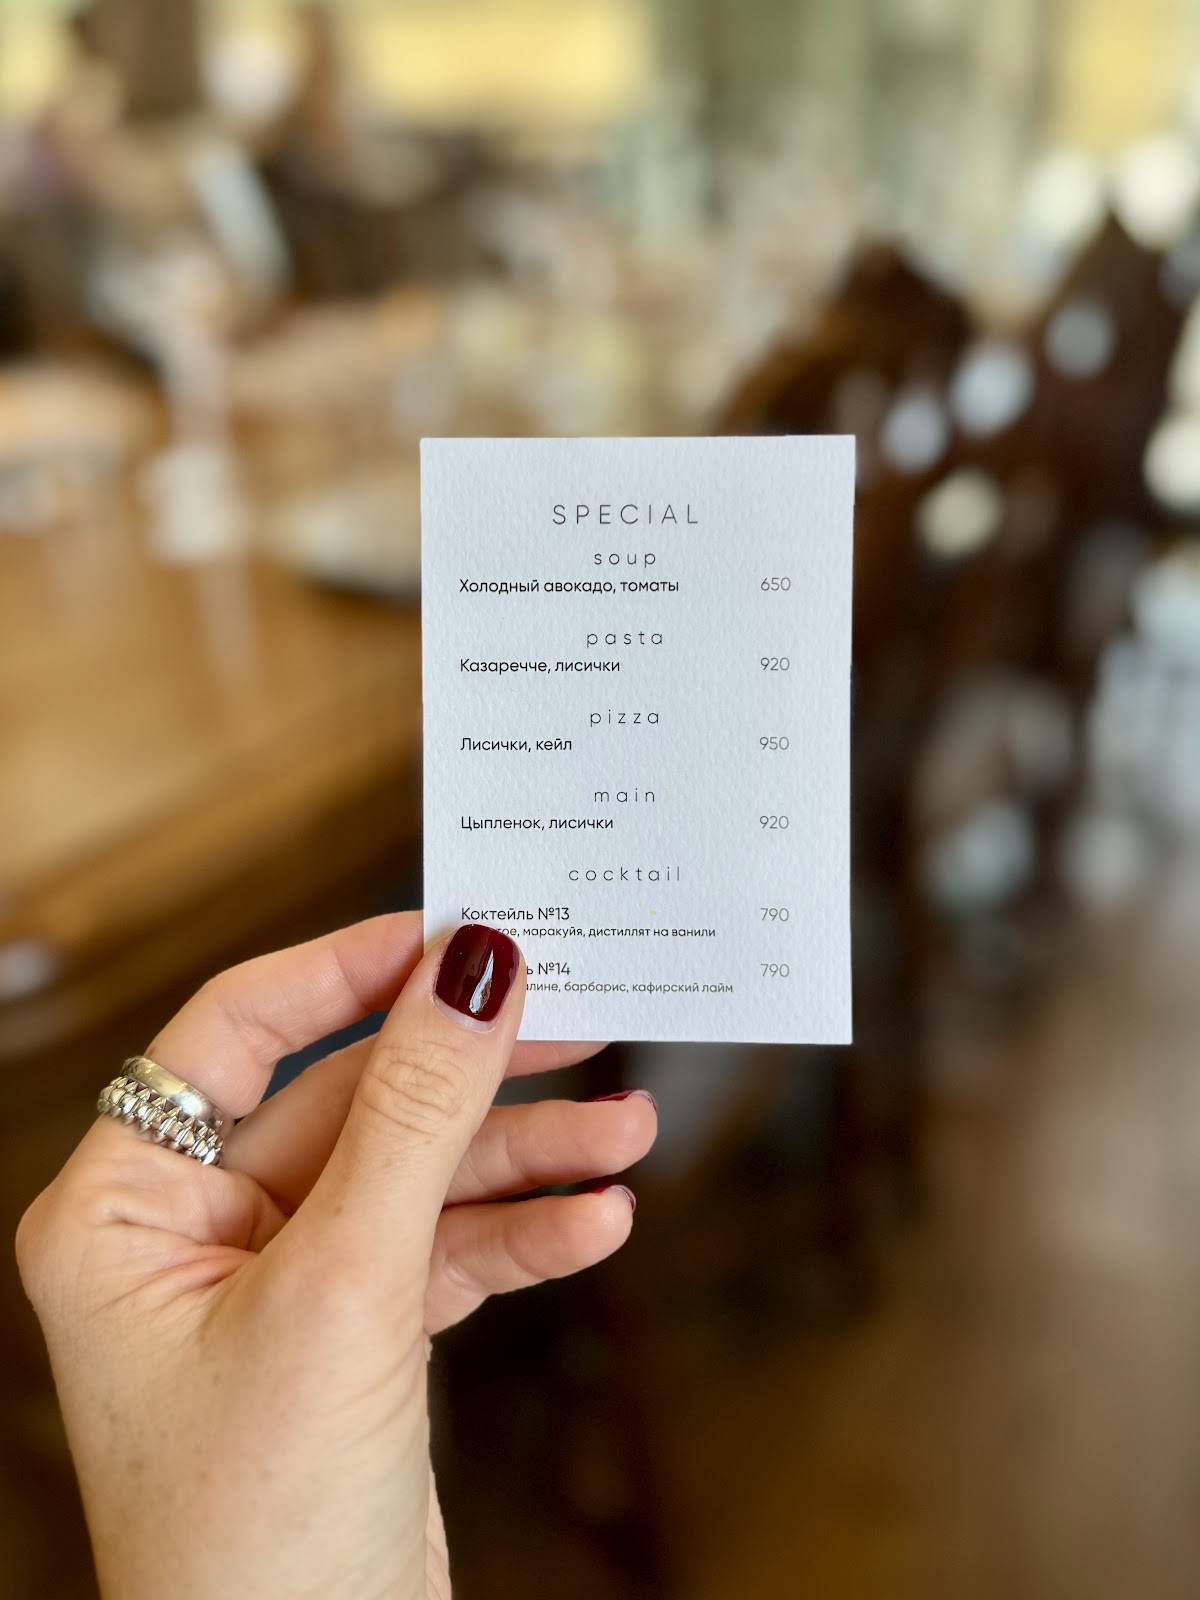 SPECIAL
soup
Холодный авокадо, томаты 650
pasta
Казаречче, лисички 920
pizza
Лисички, кейл 950
main
Цыпленок, лисички 920
cocktail
Коктейль №13 790
маракуйя, дистиллят на ванили
№14 790
барбарис, кафирский лайм